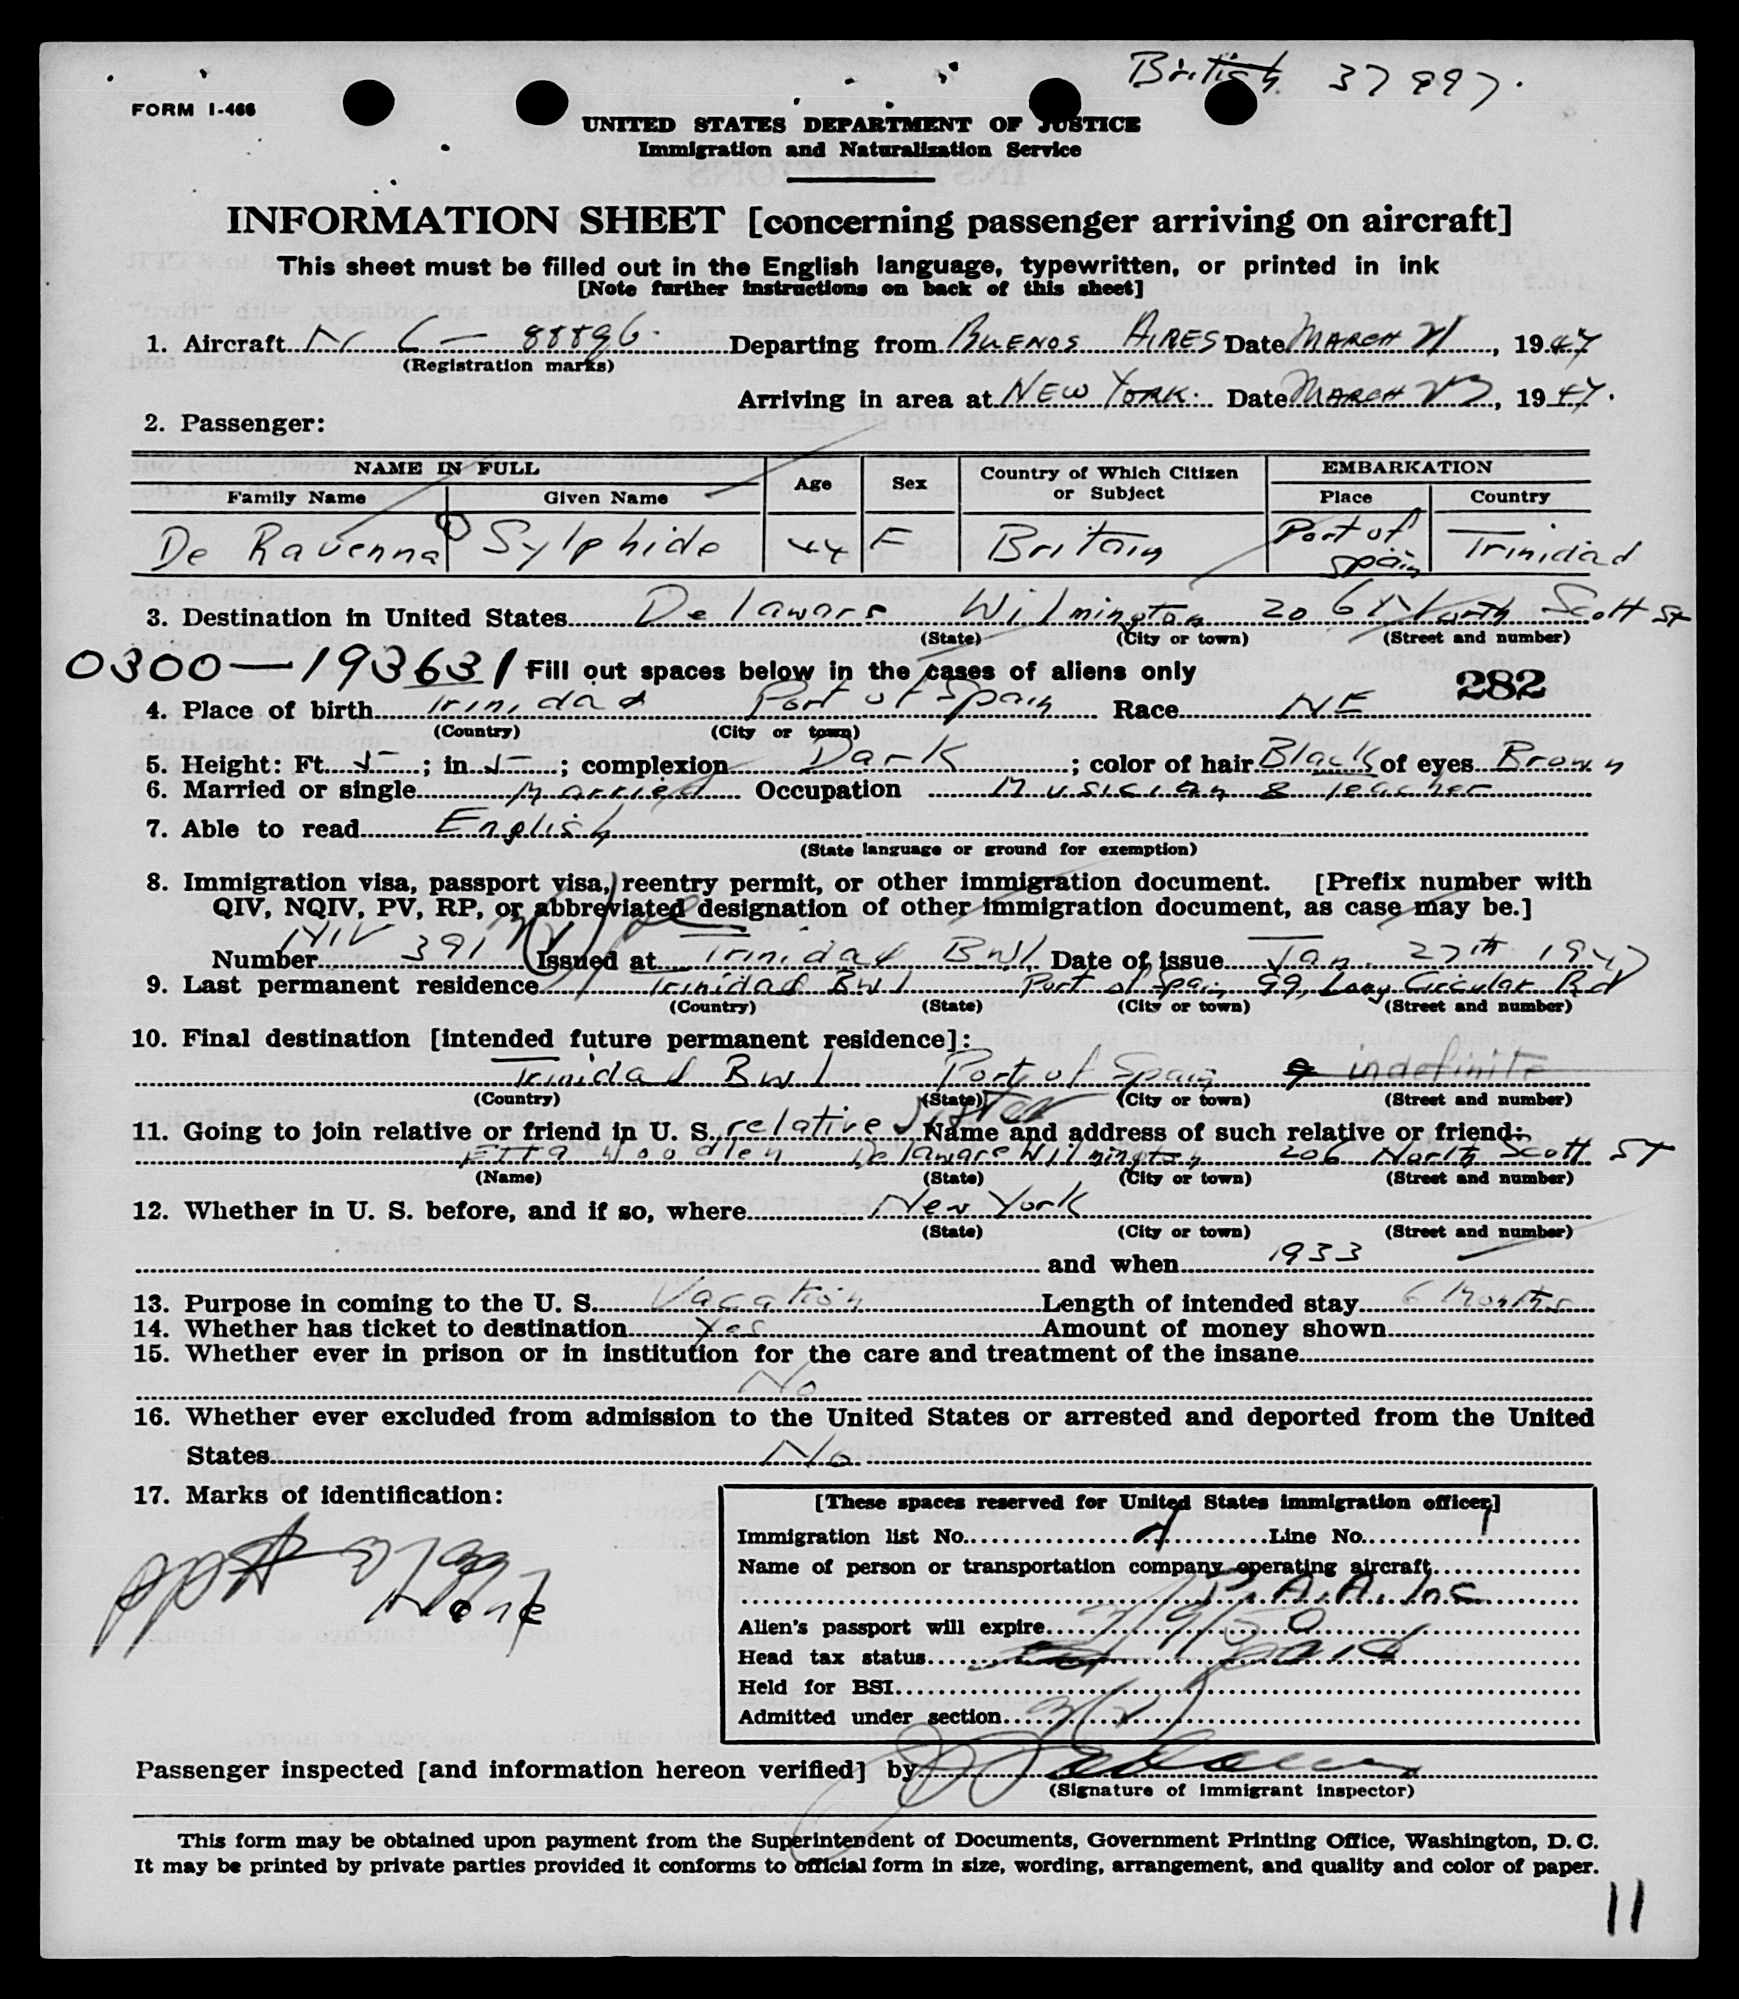 British 37997.
FORM I-466
UNITED STATES DEPARTMENT OF JUSTICE
Immigration and Naturalization Service
INFORMATION SHEET [concerning passenger arriving on aircraft]
This sheet must be filled out in the English language, typewritten, or printed in ink
[Note further instructions on back of this sheet]
1. Aircraft N C - 88896. Departing from BUENOS AIRES Date MARCH 21, 1947
(Registration marks)
Arriving in area at NEW YORK. Date MARCH 23, 1947.
2. Passenger:
NAME IN FULL Age Sex Country of Which Citizen or Subject EMBARKATION
Family Name Given Name Place Country
De Ravenna Sylphide 44 F Britain Port of Spain Trinidad
3. Destination in United States Delaware Wilmington 206 North Scott St
(State) (City or town) (Street and number)
0300-193631 Fill out spaces below in the cases of aliens only 282
4. Place of birth Trinidad Port of Spain Race NE
(Country) (City or town)
5. Height: Ft. 5; in. 5; complexion Dark; color of hair Black of eyes Brown
6. Married or single Married Occupation Musician & Teacher
7. Able to read English
(State language or ground for exemption)
8. Immigration visa, passport visa, reentry permit, or other immigration document. [Prefix number with
QIV, NQIV, PV, RP, or abbreviated designation of other immigration document, as case may be.]
Number NIV 391 Issued at Trinidad BWI Date of issue Jan. 27th 1947
9. Last permanent residence Trinidad BWI Port of Spain 99, Long Circular Rd
(Country) (State) (City or town) (Street and number)
10. Final destination [intended future permanent residence]:
Trinidad BWI Port of Spain indefinite
(Country) (State) (City or town) (Street and number)
11. Going to join relative or friend in U. S. relative Sister Name and address of such relative or friend:
Etta Woodlen Delaware Wilmington 206 North Scott ST
(Name) (State) (City or town) (Street and number)
12. Whether in U. S. before, and if so, where New York
(State) (City or town) (Street and number)
and when 1933
13. Purpose in coming to the U. S. Vacation Length of intended stay 6 Months
14. Whether has ticket to destination Yes Amount of money shown
15. Whether ever in prison or in institution for the care and treatment of the insane
No
16. Whether ever excluded from admission to the United States or arrested and deported from the United
States No
17. Marks of identification:
ppt # 37997
None
[These spaces reserved for United States immigration officer]
Immigration list No. Line No.
Name of person or transportation company operating aircraft
P. A. A. Inc
Alien's passport will expire 2/9/50
Head tax status paid
Held for BSI
Admitted under section 3(2)
Passenger inspected [and information hereon verified] by
(Signature of immigrant inspector)
This form may be obtained upon payment from the Superintendent of Documents, Government Printing Office, Washington, D. C.
It may be printed by private parties provided it conforms to official form in size, wording, arrangement, and quality and color of paper.
11